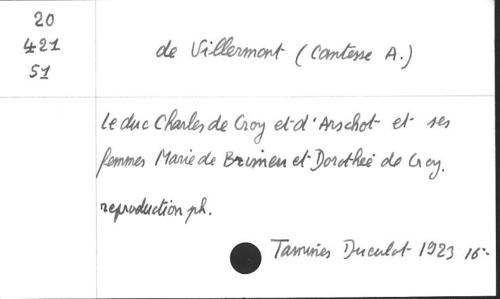 20
421
51
de Villermont (Comtesse A.)
Le duc Charles de Croy et d'Arschot et ses
femmes Marie de Brimeu et Dorothée de Croy.
reproduction ph.
Tamines Duculot 1923 16-